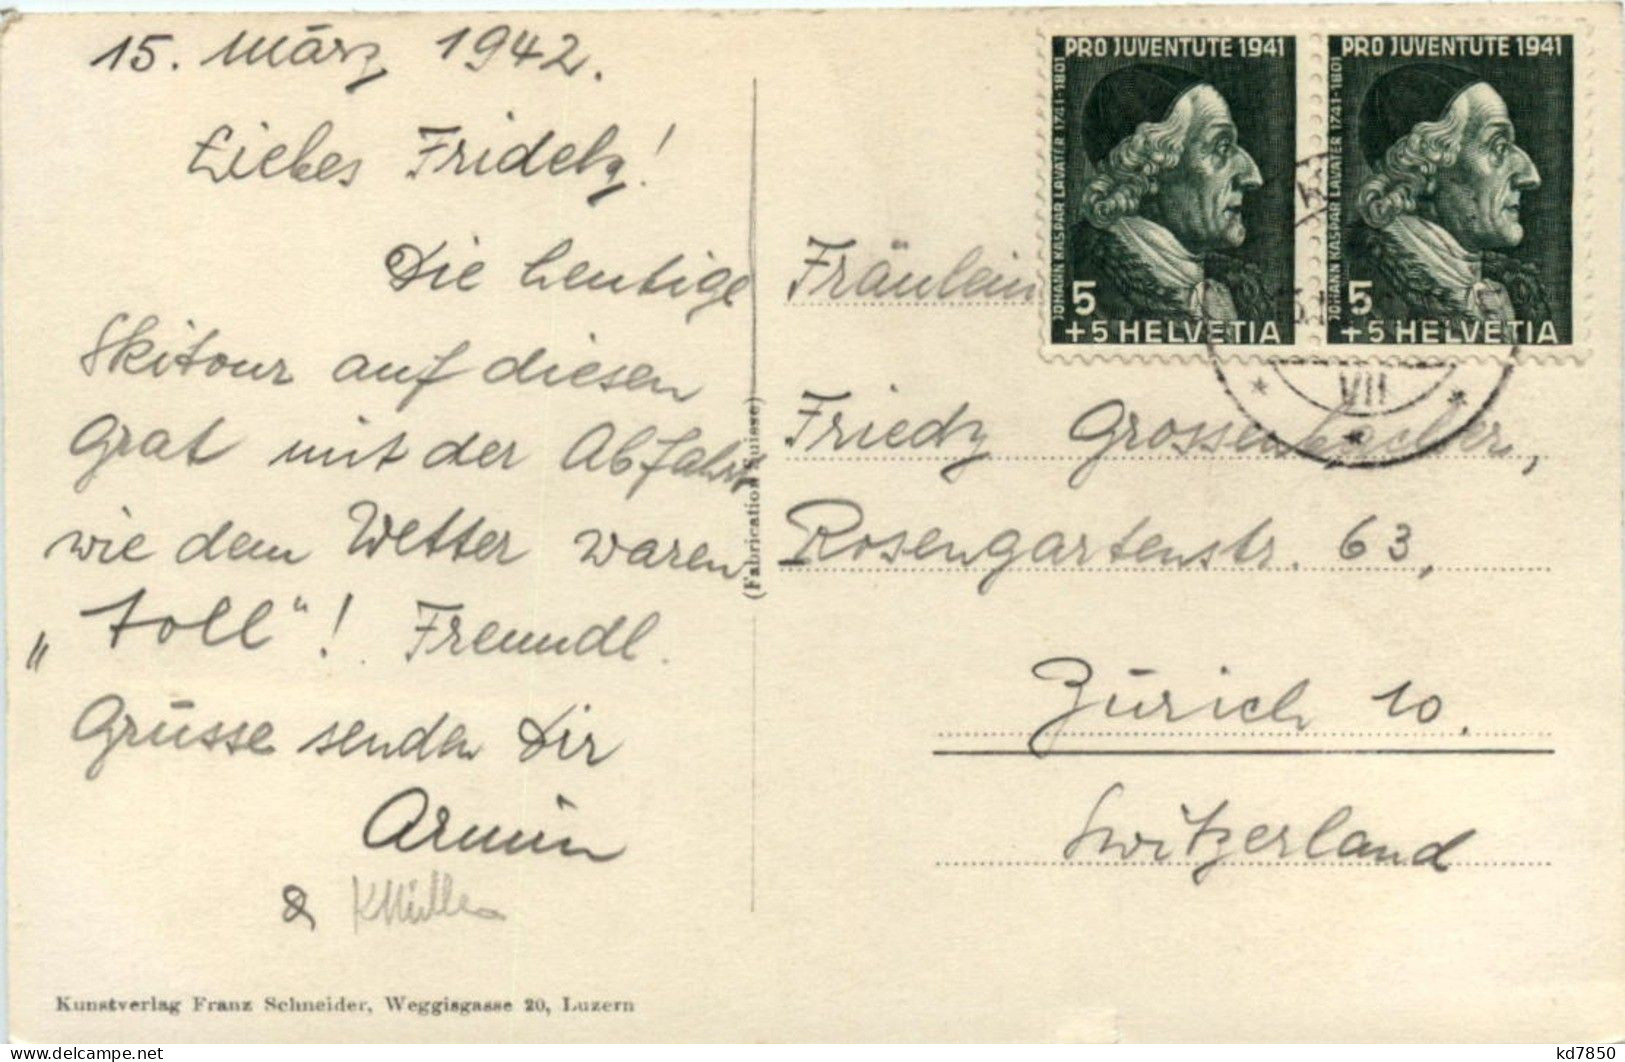 15. März 1942.
Liebes Fridely!
Die heutige
Skitour auf diesen
Grat mit der Abfahrt
wie dem Wetter waren
„toll“! Freundl.
Grüsse senden Dir
Armin
& KMüller
Kunstverlag Franz Schneider, Weggisgasse 20, Luzern
(Fabrication Suisse)
PRO JUVENTUTE 1941
JOHANN KASPAR LAVATER 1741-1801
5
+5 HELVETIA
PRO JUVENTUTE 1941
JOHANN KASPAR LAVATER 1741-1801
5
+5 HELVETIA
VII
Fräulein
Friedy Grossenbacher,
Rosengartenstr. 63,
Zürich 10.
Switzerland
delcampe.net
kd7850